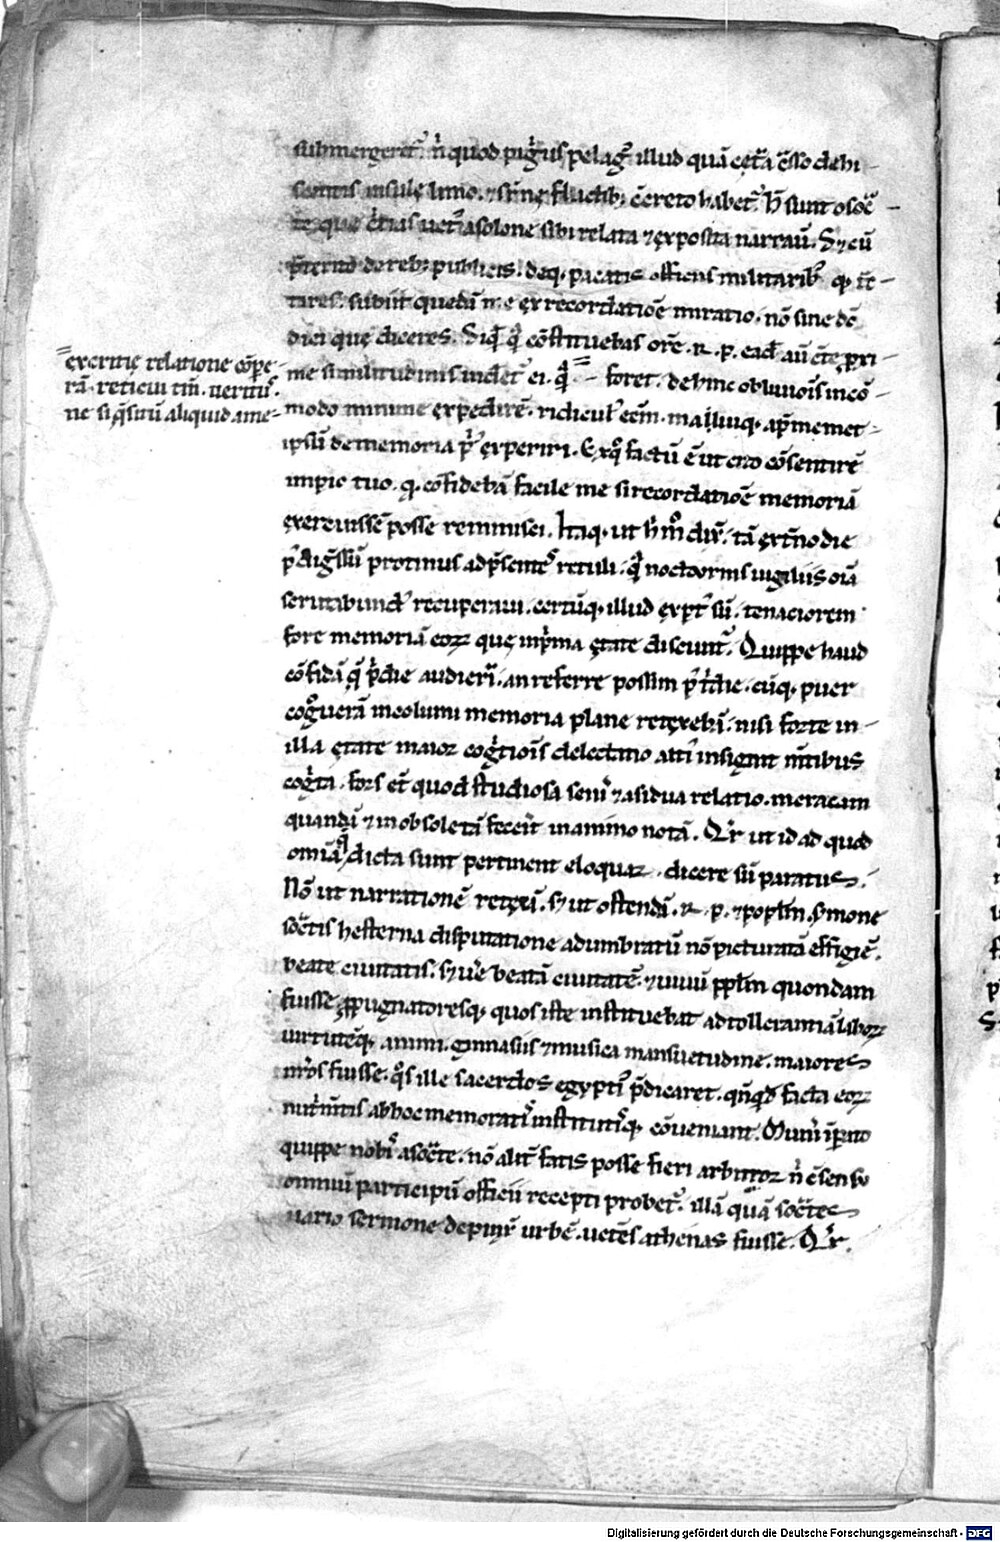 submergeret̄. n̄ quod pigͥus pelagꝰ illud quā cęt̄a c̄sso dehi-
scentis insulę limo. ⁊ sup̄nę fluctib; c̄creto habet̄. h̄ sunt o soc̄-
te que c̄tias uet᷒ a solone sibi relata ⁊ exposita narrau̅. S; cū
p̄terito de reb; publicis. deq; pacatis officiis militarib᷒ q; t̄c-
tares. subiit quedā me ex recordatiōe miratio. nō sine dō
dici quę diceres. Siq̄ q̄ cōstituebas or̄e .R. P. ead̄ au̅ c̄te p̱xi-
me similitudinis uidet̄ ei. q̄ foret. dehinc obliuiōis incō-
modo minime expedirē. ridicul᷒ eēm. maluiq; ap̄ memet-
ipsū de memoria p̄ experiri. Ex q̊ factū ē ut cito cōsentirē
imp̱io tuo. q; cōfidebā facile me si recordatiōe memoriā
exercuissē posse reminisci. Itaq; ut h̄mͦ dix̄. tā ext̄no die
p̄digͥssū protinus ad p̄sente᷒ retuli. q̄ nocturnis uigiliis oīa
scrutabund᷒ recuperaui. certūq; illud exp̱t᷒ sū. tenaciorem
fore memoriā eoꝝ quę in p̄ma ętate discunt̄. Quippe haud
cōfidā q̄ p̄die audierī. an referre possim p̄t̄die. cūq; puer
cogͦuerā incolumi memoria plane retexebā. nisi forte in-
illa ętate maior cogͥtiōis delectatio alti᷒ insignit m̄tibus
cogͥta. fors et̄ quod studiosa seni᷒ ⁊ asidua relatio. meracam
quandā ⁊ inobsoletā fecerit in animo notā. Q̄r ut id ad quod
omīa dicta sunt pertinent eloquar. dicere sū paratus.
Nō ut narrationē retexā. s; ut ostendā .R. P. ⁊ pop̱lm. sermone
soc̄tis hesterna disputatione adumbratū nō picturatā effigiē.
beate ciuitatis. s; ue᷒e beatā ciuitatē. ⁊ uiuū pp̱lm quondam
fuisse. ꝓpugnatoresq; quos iste instituebat ad tollerantiā laboꝝ
uirtutēq; animi. gimnasiis ⁊ musica mansuetudine. maiores
nr̄os fuisse. q̊s ille sacerdos egypti᷒ p̄dicaret. qn̄q̄d facta eoꝝ
nutrim̄tis ab hoc memorati᷒ institutisq; cōueniant. Muneī īp̱ato
quippe nobī a soc̄te. nō alit̄ satis posse fieri arbitror n̄ c̄sensu
omniū participū officii recepti probet̄. illā quā soc̄tes
uario sermone depinx̄ urbē. uet̄es athenas fuisse. Q̄r.
ex critię relatione cōpe-
rā. reticui tm̄. uerit᷒.
ne si q̄situ̅ aliquid a me-